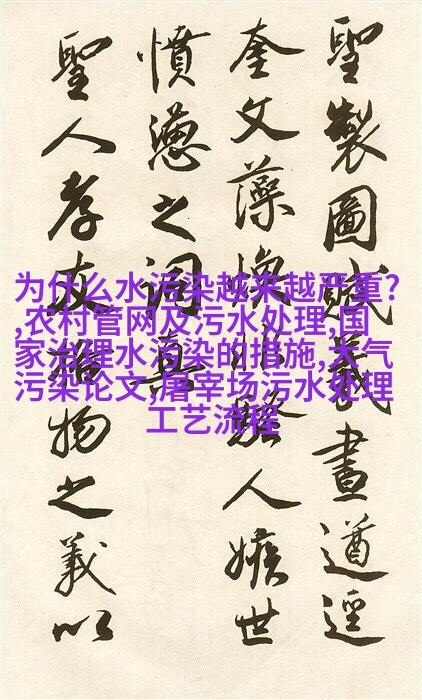 聖製圖賦義畫遒逕
奎文藻煥非騷人嫉世
憤懣之詞
聖人孝友物之義以
为什么水污染越来越严重?
,农村管网及污水处理,国
家治理水污染的措施,大气
污染论文,屠宰场污水处理
工艺流程